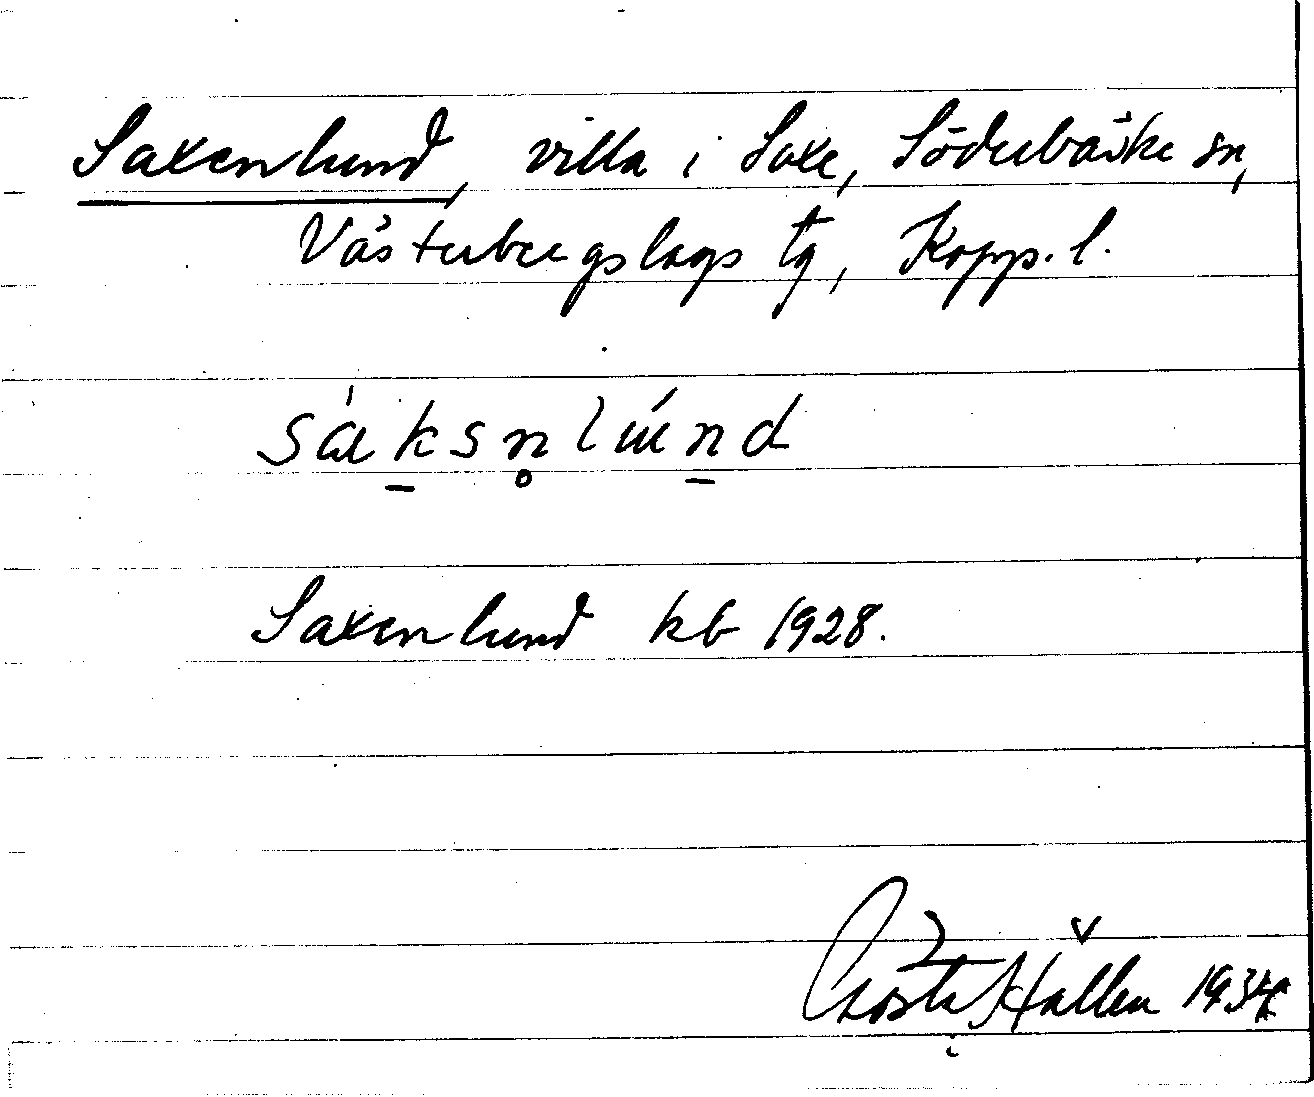 Saxenlund, villa i Saxe, Söderbärke sn,
Västerbergslags tg, Kopp. l.
sáksn̥lúnd
Saxenlund kb 1928.
Gösta Hallen 1934